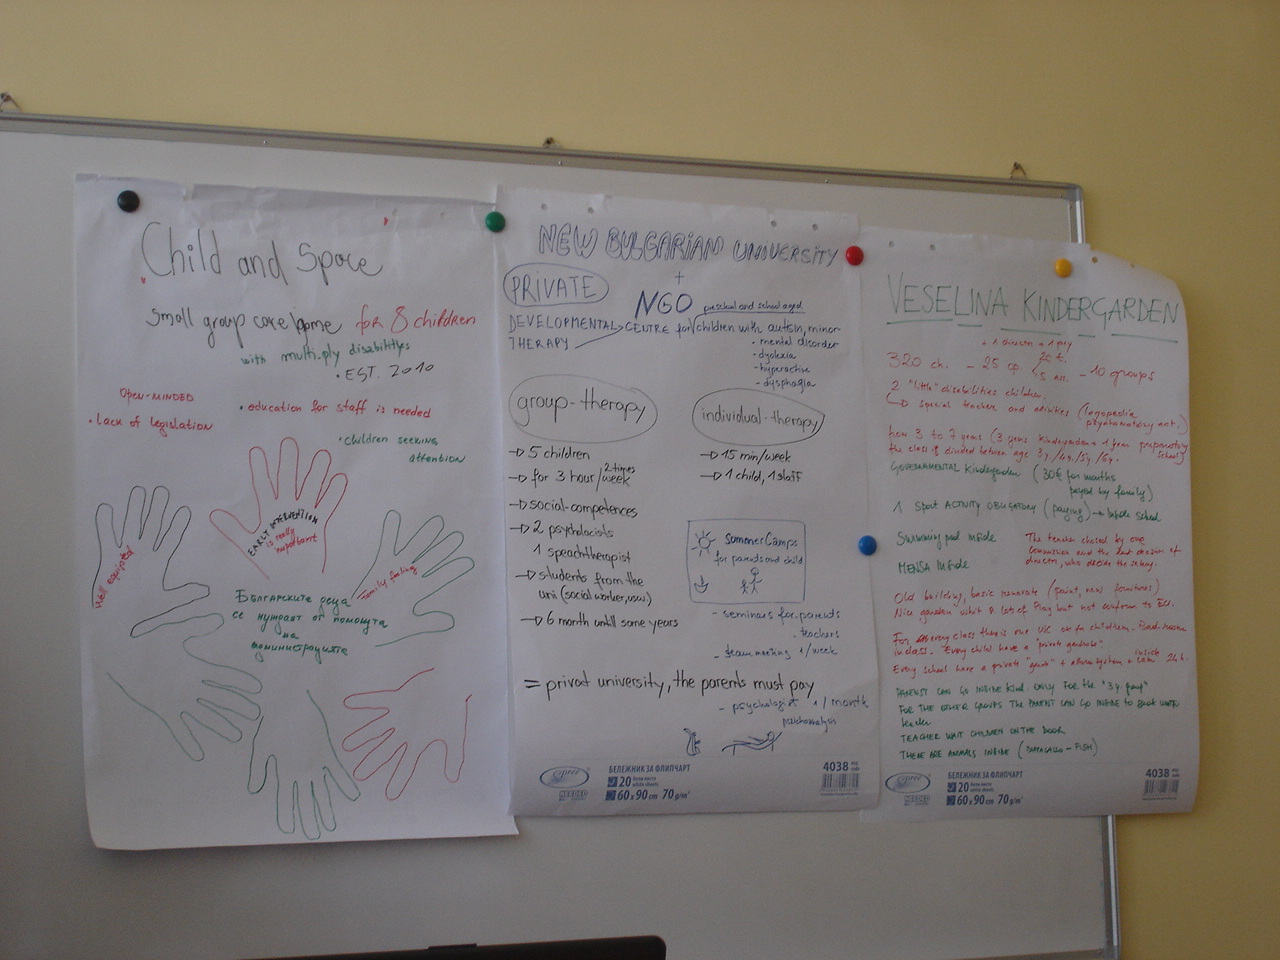 Child and Space
Small group care home for 8 children
with multiply disabilitys
• EST. 2010
OPEN-MINDED
• lack of legislation
• education for staff is needed
• children seeking
attention
EARLY INTERVENTION
is really
important
Well equiped
family feeling
Българските деца
се нуждаят от помощта
на
администрацията
NEW BULGARIAN UNIVERSITY
+
PRIVATE
NGO
preschool and school aged
DEVELOPMENTAL CENTRE for children with autism, minor
THERAPY
• mental disorder
• dyslexia
• hyperactive
• dysphagia
group-therapy
→ 5 children
→ for 3 hour/2 times week
→ social-competences
→ 2 psychologists
1 speachtherapist
→ students from the
uni (social worker,
→ 6 month until some years
individual-therapy
→ 15 min/week
→ 1 child, 1 staff
Summer Camps
for parents and child
- seminars for parents
• teachers
- teammeeting 1/week
= privat university, the parents must pay
- psychologist 1/month
БЕЛЕЖНИК ЗА ФЛИПЧАРТ
20 бели листа
white sheets
60 x 90 cm 70 g/m²
4038
VESELINA KINDERGARDEN
320 ch. - 25 - 10 groups
2 "little" disabilities children
↳ special teacher and activities (logopedia
psychomotory act.)
from 3 to 7 years (3 years kindergarden + 1 year preparatory
school)
the class is divided between age 3y/4y./5y/6y.
GOVERNMENTAL Kindergarden (30€ for months
payed by family)
1 SPORT ACTIVITY OBLIGATORY (paying) → whole school
Swimming pool inside
MENSA inside
The teacher chosed by one
commission and the last decision of
director, who decide the salary.
Old building, basic renovate (paint, new furnitures)
Nice garden with a lot of play but not conform to EU.
For every class there is one WC for children. Bad-room
in class. Every child have a "private
Every school have a private + alarm system + inside 24h.
PARENT CAN GO INSIDE KIND. ONLY FOR THE "3y.
FOR THE OTHER GROUPS THE PARENT CAN GO INSIDE TO speak WITH
teacher
TEACHER WAIT CHILDREN ON THE DOOR
THERE ARE ANIMALS INSIDE (PAPPAGALLO - FISH)
БЕЛЕЖНИК ЗА ФЛИПЧАРТ
20 бели листа
white sheets
60 x 90 cm 70 g/m²
4038